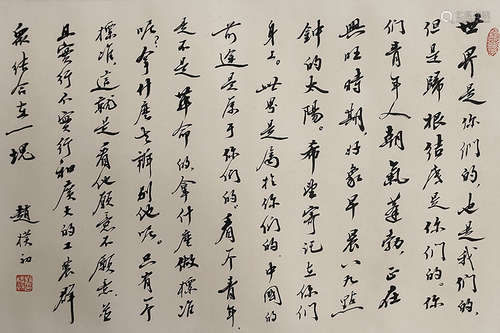 世界是你們的，也是我們的，
但是歸根結底是你們的。你
們青年人朝氣蓬勃，正在
興旺時期，好象早晨八九點
鐘的太陽。希望寄託在你們
身上。世界是屬於你們的。中國的
前途是屬于你們的。看一个青年
是不是革命的，拿什麼做標準
呢？拿什麼去辨别他呢。只有一个
標準，這就是看他願意不願意、並
且實行不實行和廣大的工農群
衆結合在一塊
趙樸初